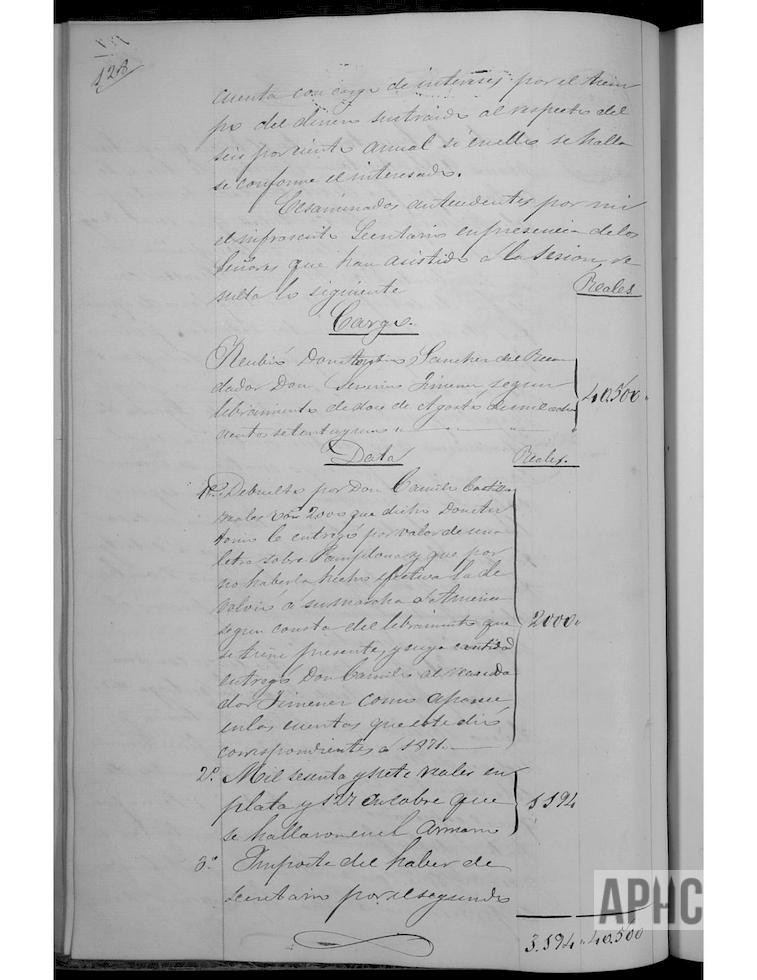 128
cuenta con cargo de intereses por el tiem
po del dinero sustraido al respecto del
seis por ciento anual si en ello se halla
se conforme el interesado.
Ecsaminados antecedentes por mi
el infrascrito Secretario en presencia de los
Señores que han asistido á la sesion, re
sulta lo siguiente
Reales
Cargo.
Recibió Don Sanchez del Recau
dador Don Severino Jimenez segun
libramiento de doce de Agosto de mil ocho
cientos setenta y uno
40,500
Data
Reales.
1º Debuelto por Don Camilo Castillo
reales von 2000 que dicho Don An
tonio le entregó por valor de una
letra sobre Pamplona y que por
no haberla hecho efectiva la de
volvió á su marcha á America
segun consta del libramiento que
se tiene presente, y cuya cantidad
entregó Don Camilo al recauda
dor Jimenez como aparece
en las cuentas que este dió
correspondientes á 1871.
2000
2º Mil sesenta y siete reales en
plata y 127 en cobre que
se hallaron en el Armario
1194
3º Importe del haber de
Secretario por el segundo
3.194 40,500
APHC